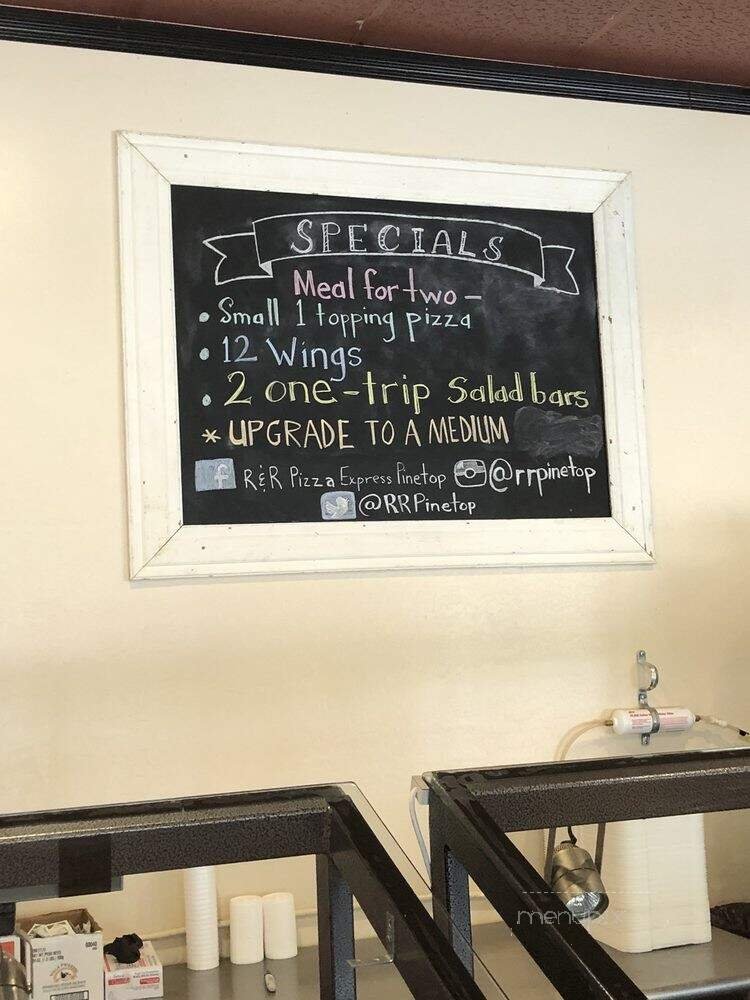 SPECIALS
Meal for two -
• Small 1 topping pizza
• 12 Wings
• 2 one-trip Salad bars
* UPGRADE TO A MEDIUM
f R&R Pizza Express Pinetop @rrpinetop
@RRPinetop
menu